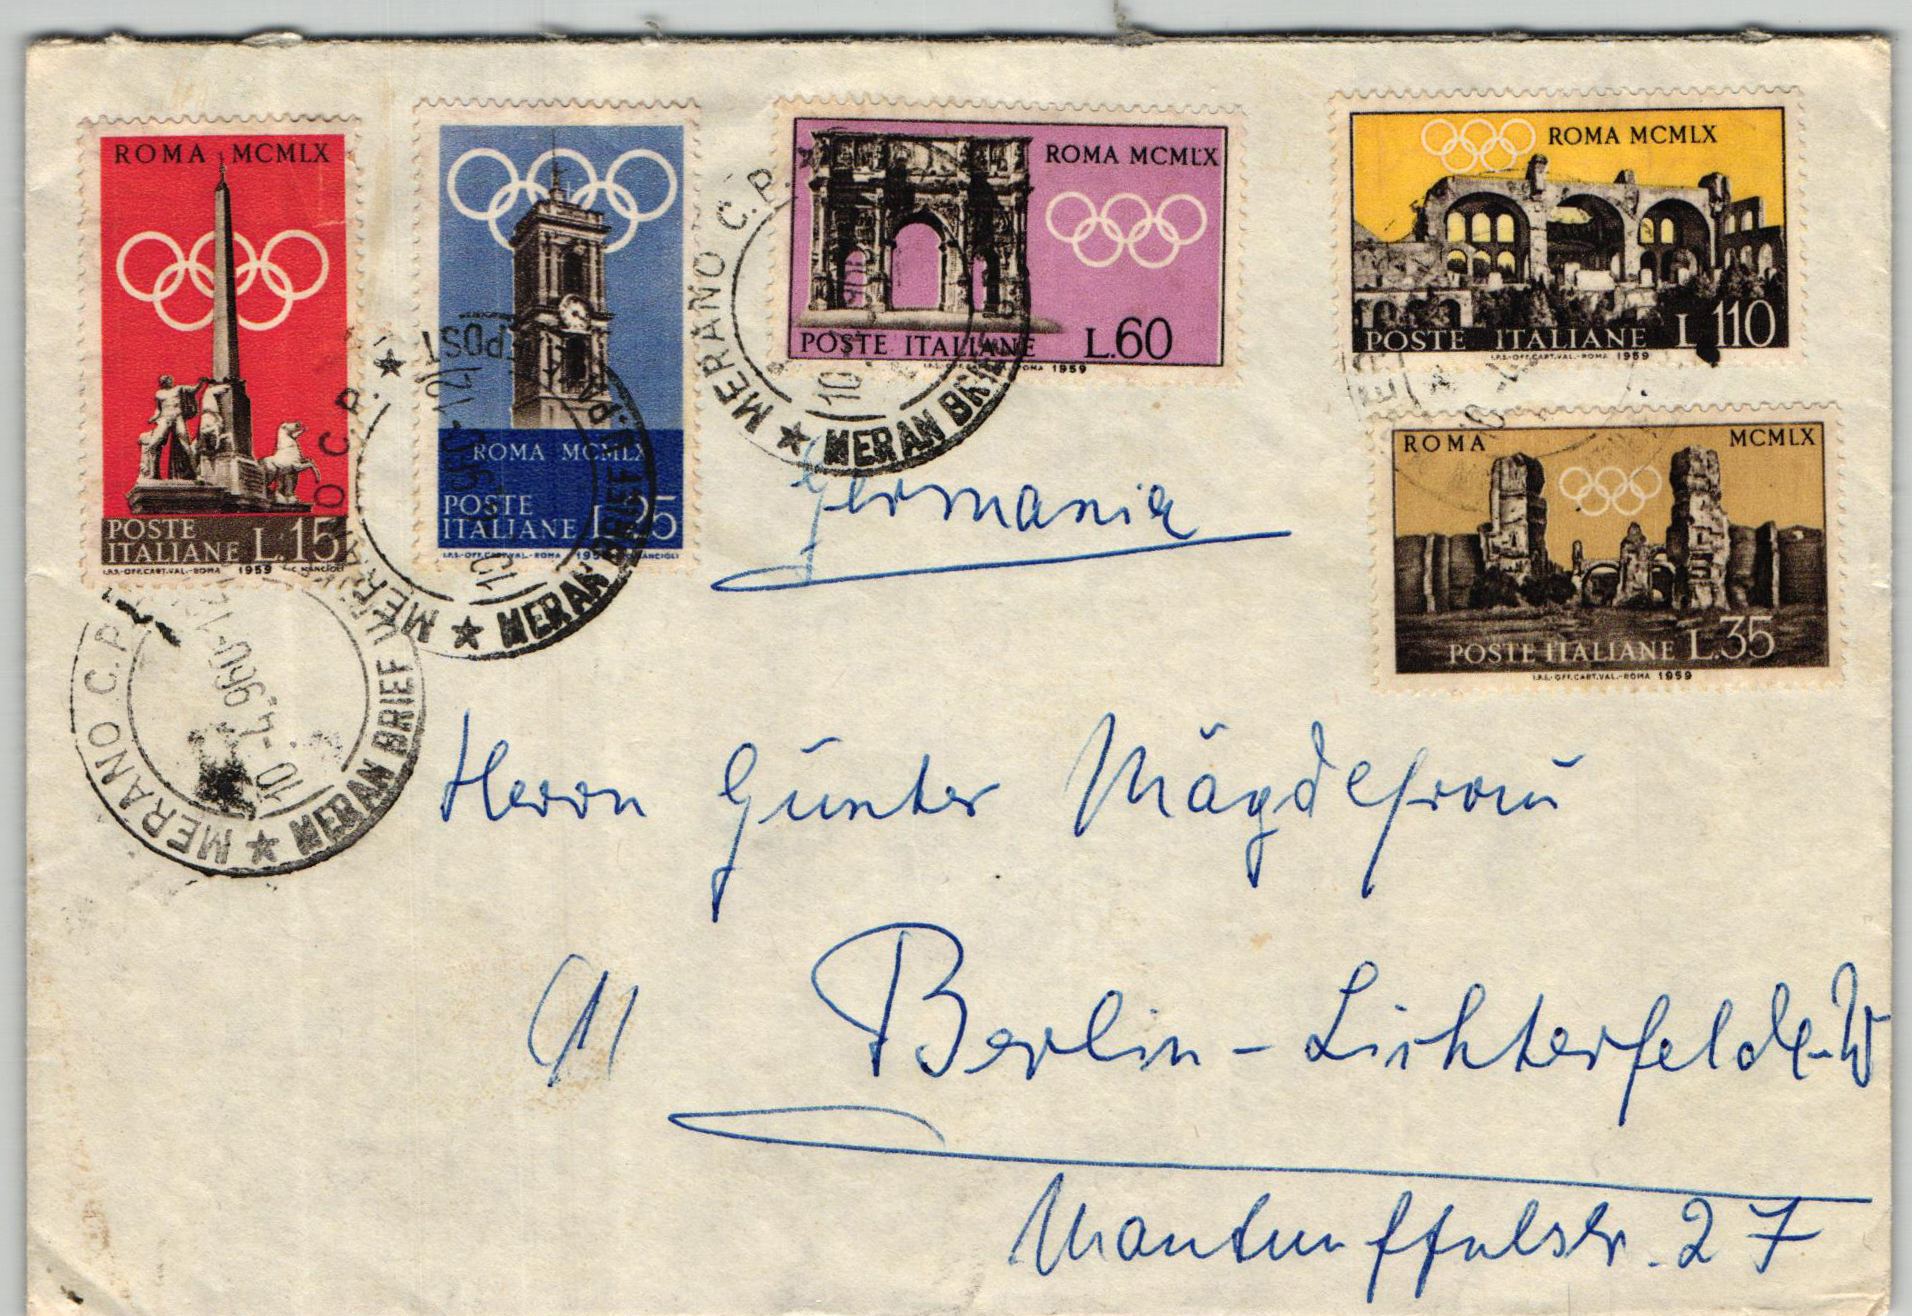 ROMA MCMLX
POSTE
ITALIANE L.15
I.P.S.-OFF.CART.VAL.-ROMA 1959 C. MANCIOLI
ROMA MCMLX
POSTE
ITALIANE L.25
I.P.S.-OFF.CART.VAL.-ROMA 1959 MANCIOLI
ROMA MCMLX
POSTE ITALIANE L.60
ROMA 1959
ROMA MCMLX
POSTE ITALIANE L.110
I.P.S.-OFF.CART.VAL.-ROMA 1959
ROMA MCMLX
POSTE ITALIANE L.35
I.P.S.-OFF.CART.VAL.-ROMA 1959
MERANO C.P. ★ MERAN BRIEF
MERANO C.P. ★ MERAN BRIEF U.PAKETPOST
MERANO C.P. ★ MERAN BRIEF
10.4.960-12
Germania
Herrn Günter Mägdefrau
Berlin-Lichterfelde-W
Manteuffelstr. 27